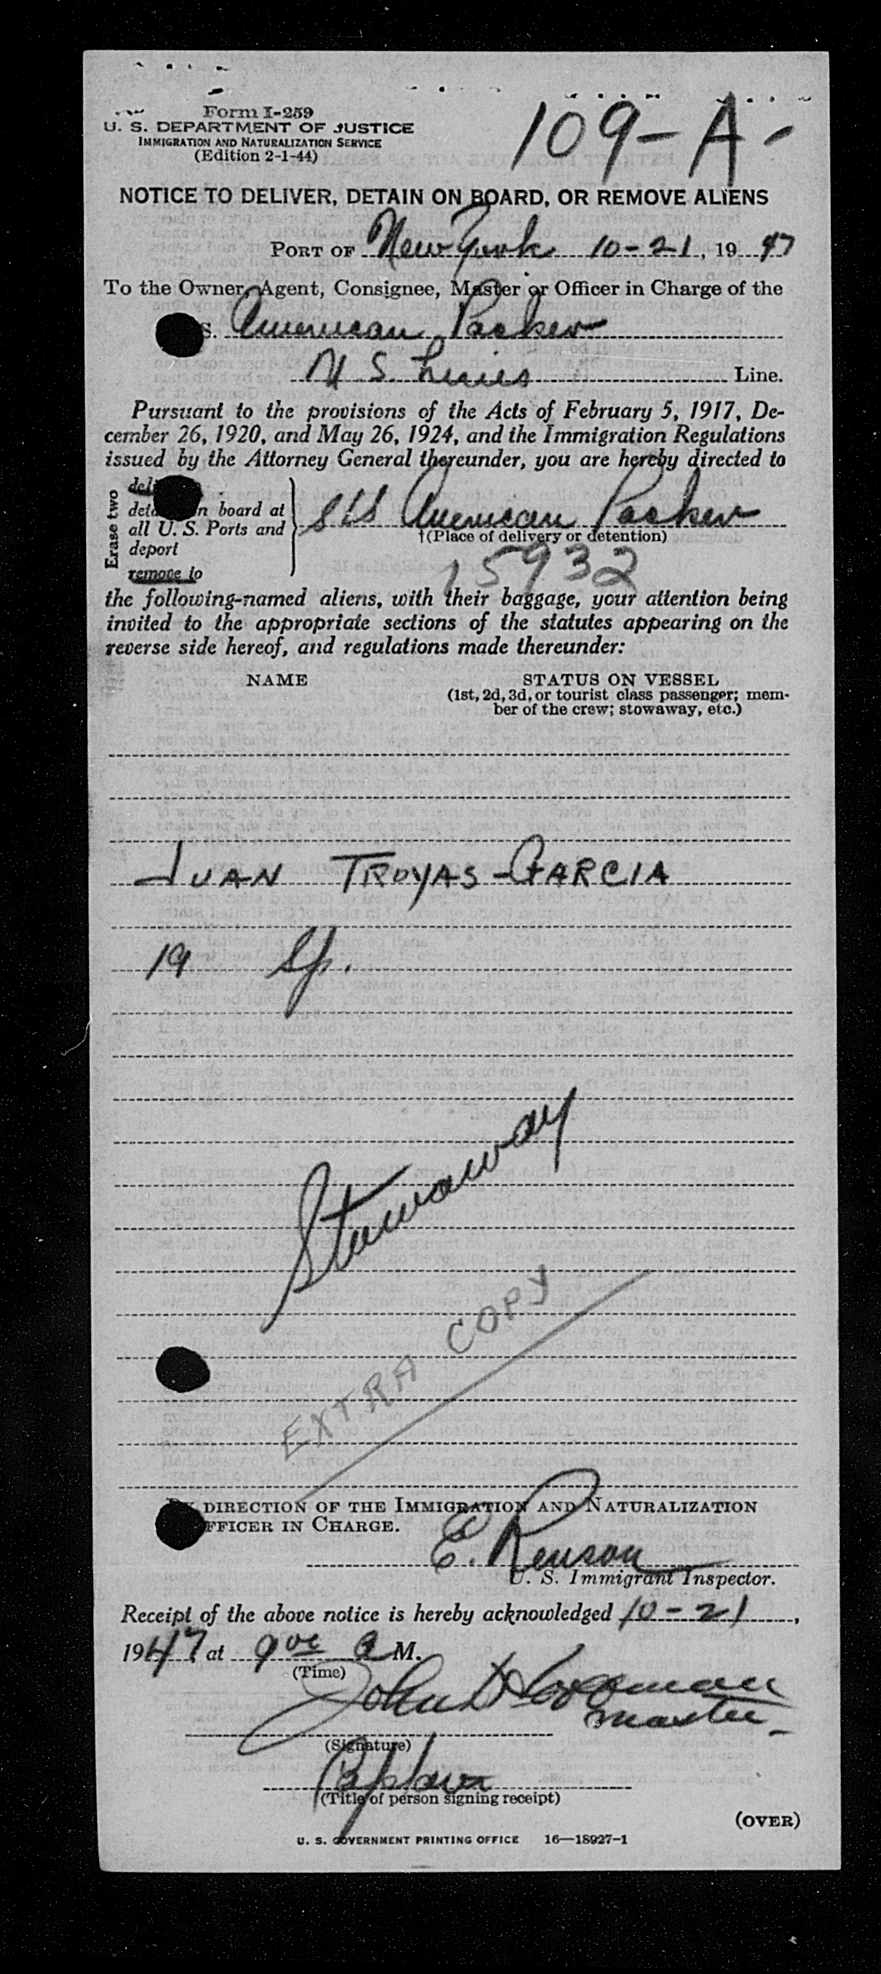 Form I-259
U. S. DEPARTMENT OF JUSTICE
IMMIGRATION AND NATURALIZATION SERVICE
(Edition 2-1-44)
109-A-
NOTICE TO DELIVER, DETAIN ON BOARD, OR REMOVE ALIENS
PORT OF New York 10-21, 19 47
To the Owner, Agent, Consignee, Master or Officer in Charge of the
S. American Packer
U S. Lines Line.
Pursuant to the provisions of the Acts of February 5, 1917, De-
cember 26, 1920, and May 26, 1924, and the Immigration Regulations
issued by the Attorney General thereunder, you are hereby directed to
Erase two
n board at
all U. S. Ports and
deport
remove to
SS American Packer
†(Place of delivery or detention)
15932
the following-named aliens, with their baggage, your attention being
invited to the appropriate sections of the statutes appearing on the
reverse side hereof, and regulations made thereunder:
NAME STATUS ON VESSEL
(1st, 2d, 3d, or tourist class passenger; mem-
ber of the crew; stowaway, etc.)
JUAN TROYAS-GARCIA
19 Sp.
Stowaway
EXTRA COPY
BY DIRECTION OF THE IMMIGRATION AND NATURALIZATION
OFFICER IN CHARGE.
E. Renson
U. S. Immigrant Inspector.
Receipt of the above notice is hereby acknowledged 10-21,
1947 at 9 00 A M.
(Time)
John
Master
(Signature)
(Title of person signing receipt)
(OVER)
U. S. GOVERNMENT PRINTING OFFICE 16—18927-1